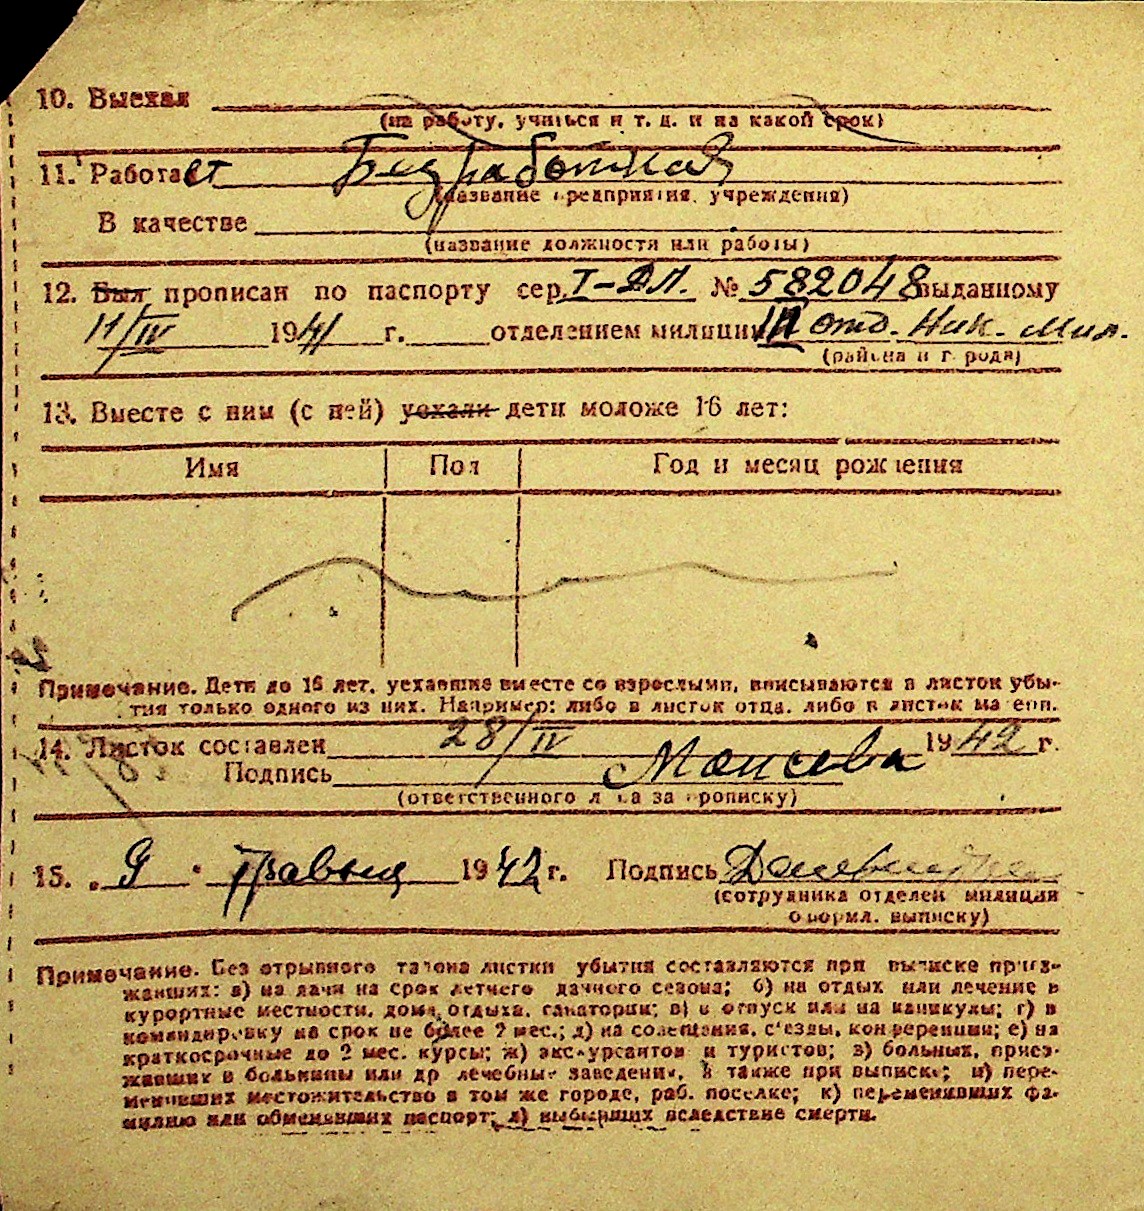 10. Выехал
(на работу, учиться и т. д. и на какой срок)
11. Работает Безработная
(название предприятия, учреждения)
В качестве
(название должности или работы)
12. Был прописан по паспорту сер. I-ДЛ. № 582048 выданному
11/IV 1941 г. отделением милиции III отд. Ник. Мил.
(района и города)
13. Вместе с ним (с ней) уехали дети моложе 16 лет:
Имя Пол Год и месяц рождения
Примечание. Дети до 16 лет, уехавшие вместе со взрослыми, вписываются в листок убы-
тия только одного из них. Например: либо в листок отца, либо в листок матери.
14. Листок составлен 28/IV 1942 г.
Подпись Моисеева
(ответственного лица за прописку)
15. 9 • Травня 1942 г. Подпись
(сотрудника отделен. милиции
оформл. выписку)
Примечание. Без отрывного талона листки убытия составляются при выписке приез-
жавших: а) на дачи на срок летнего дачного сезона; б) на отдых или лечение в
курортные местности, дома отдыха, санатории; в) в отпуск или на каникулы; г) в
командировку на срок не более 2 мес.; д) на совещания, с'езды, конференции; е) на
краткосрочные до 2 мес. курсы; ж) экскурсантов и туристов; з) больных, приез-
жавших в больницы или др. лечебные заведения, а также при выписке; и) пере-
менивших местожительство в том же городе, раб. поселке; к) переменивших фа-
милию или обменявших паспорт; л) выбывших вследствие смерти.